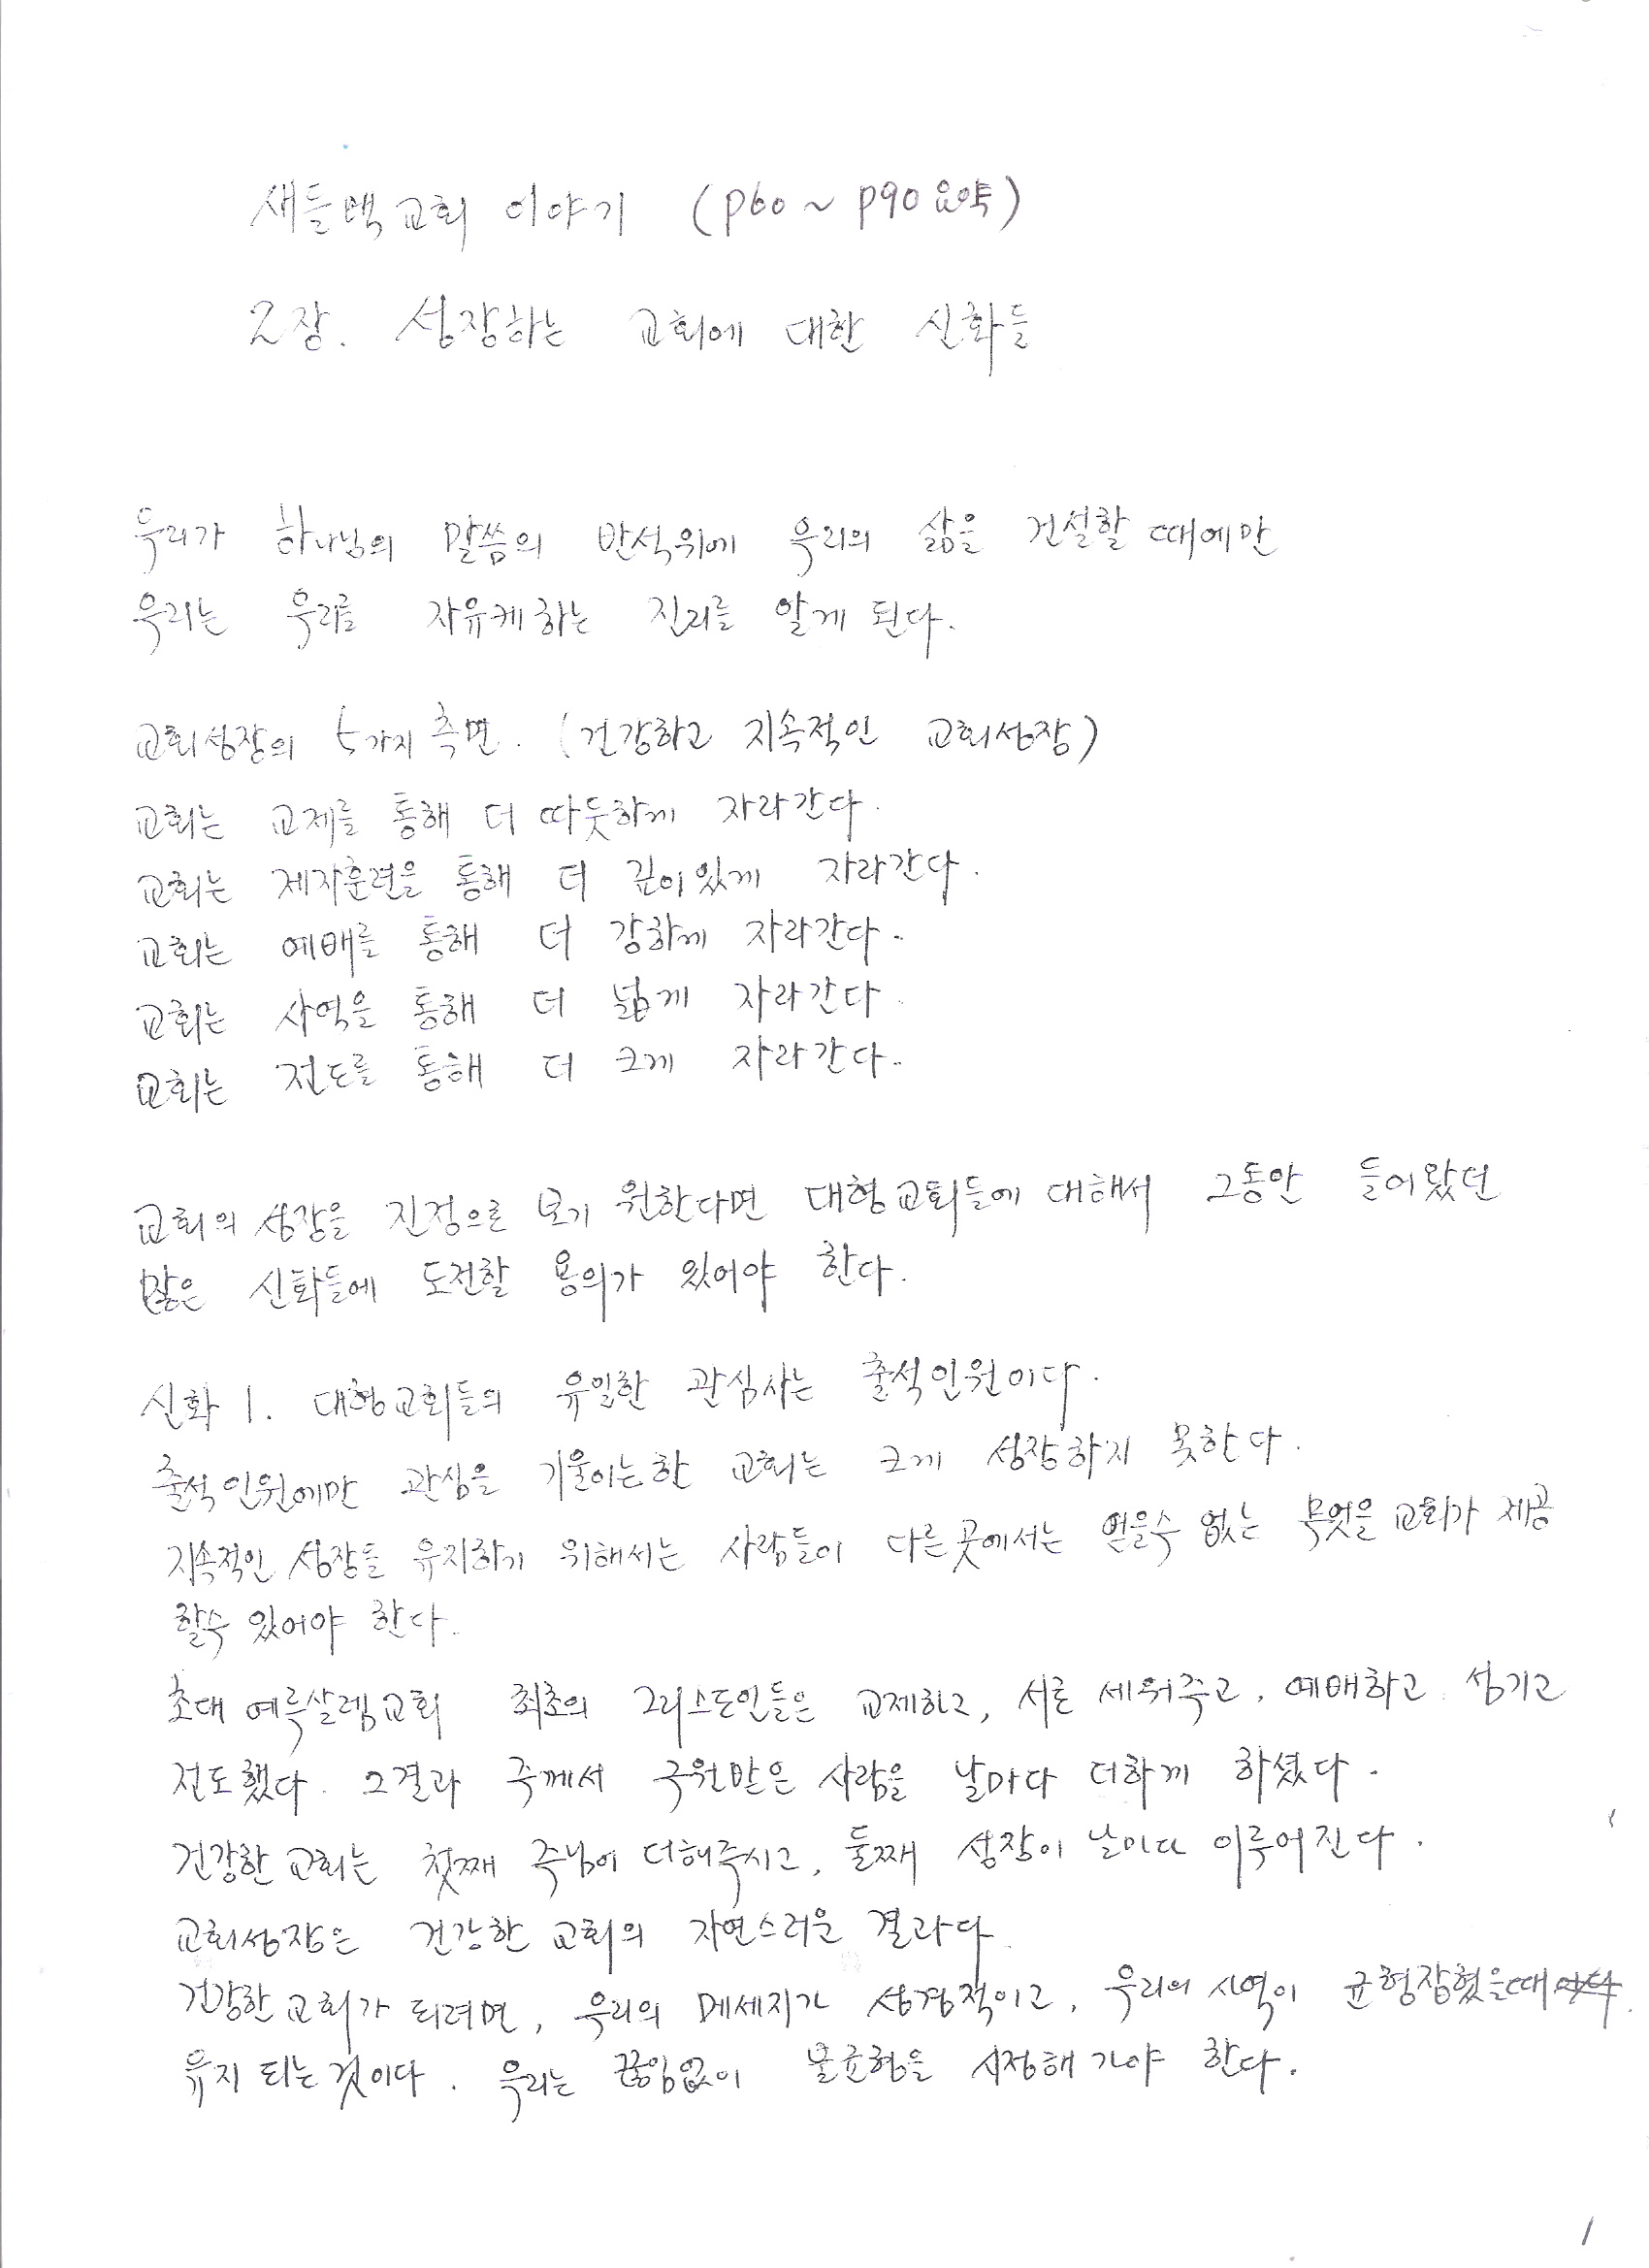 새들백교회 이야기 (p60 ~ p90 요약)
2장. 성장하는 교회에 대한 신화들
우리가 하나님의 말씀의 반석위에 우리의 삶을 건설할 때에만
우리는 우리를 자유케하는 진리를 알게 된다.
교회성장의 5가지 측면. (건강하고 지속적인 교회성장)
교회는 교제를 통해 더 따듯하게 자라간다.
교회는 제자훈련을 통해 더 깊이있게 자라간다.
교회는 예배를 통해 더 강하게 자라간다.
교회는 사역을 통해 더 넓게 자라간다.
교회는 전도를 통해 더 크게 자라간다.
교회의 성장을 진정으로 보기 원한다면 대형교회들에 대해서 그동안 들어왔던
많은 신화들에 도전할 용의가 있어야 한다.
신화 1. 대형교회들의 유일한 관심사는 출석인원이다.
출석인원에만 관심을 기울이는한 교회는 크게 성장하지 못한다.
지속적인 성장을 유지하기 위해서는 사람들이 다른곳에서는 얻을수 없는 무엇을 교회가 제공
할수 있어야 한다.
초대 예루살렘교회 최초의 그리스도인들은 교제하고, 서로 세워주고, 예배하고 섬기고
전도했다. 그결과 주께서 구원받은 사람을 날마다 더하게 하셨다.
건강한 교회는 첫째 주님이 더해주시고, 둘째 성장이 날마다 이루어진다.
교회성장은 건강한 교회의 자연스러운 결과다.
건강한 교회가 되려면, 우리의 메세지가 성경적이고, 우리의 사역이 균형잡혔을때
유지 되는 것이다. 우리는 끊임없이 불균형을 시정해 가야 한다.
1